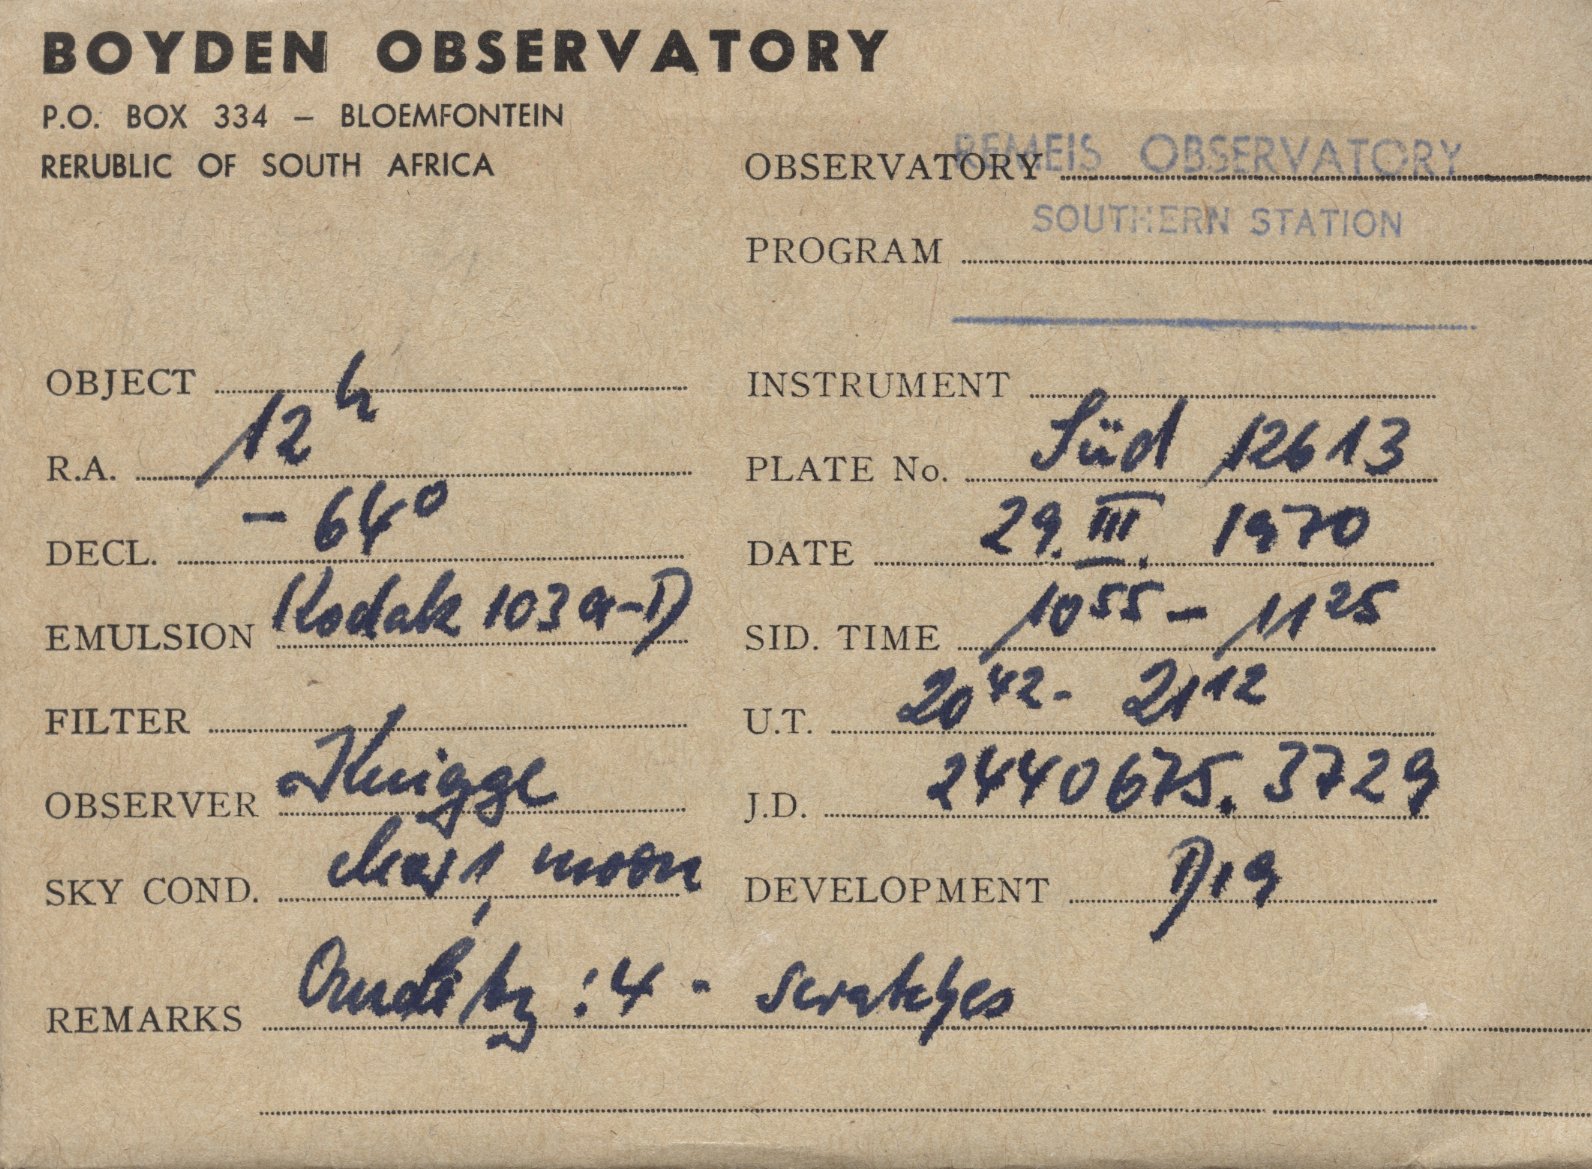 BOYDEN OBSERVATORY
P.O. BOX 334 – BLOEMFONTEIN
RERUBLIC OF SOUTH AFRICA
OBSERVATORY REMEIS OBSERVATORY
SOUTHERN STATION
PROGRAM
OBJECT
INSTRUMENT
R.A. 12h
PLATE No. Süd 12613
DECL. - 64°
DATE 29. III. 1970
EMULSION Kodak 103a-D
SID. TIME 10 55 - 11 25
FILTER
U.T. 20 42 - 21 12
OBSERVER Knigge
J.D. 2440675.3729
SKY COND. clear, moon
DEVELOPMENT D19
REMARKS : 4 - scratches